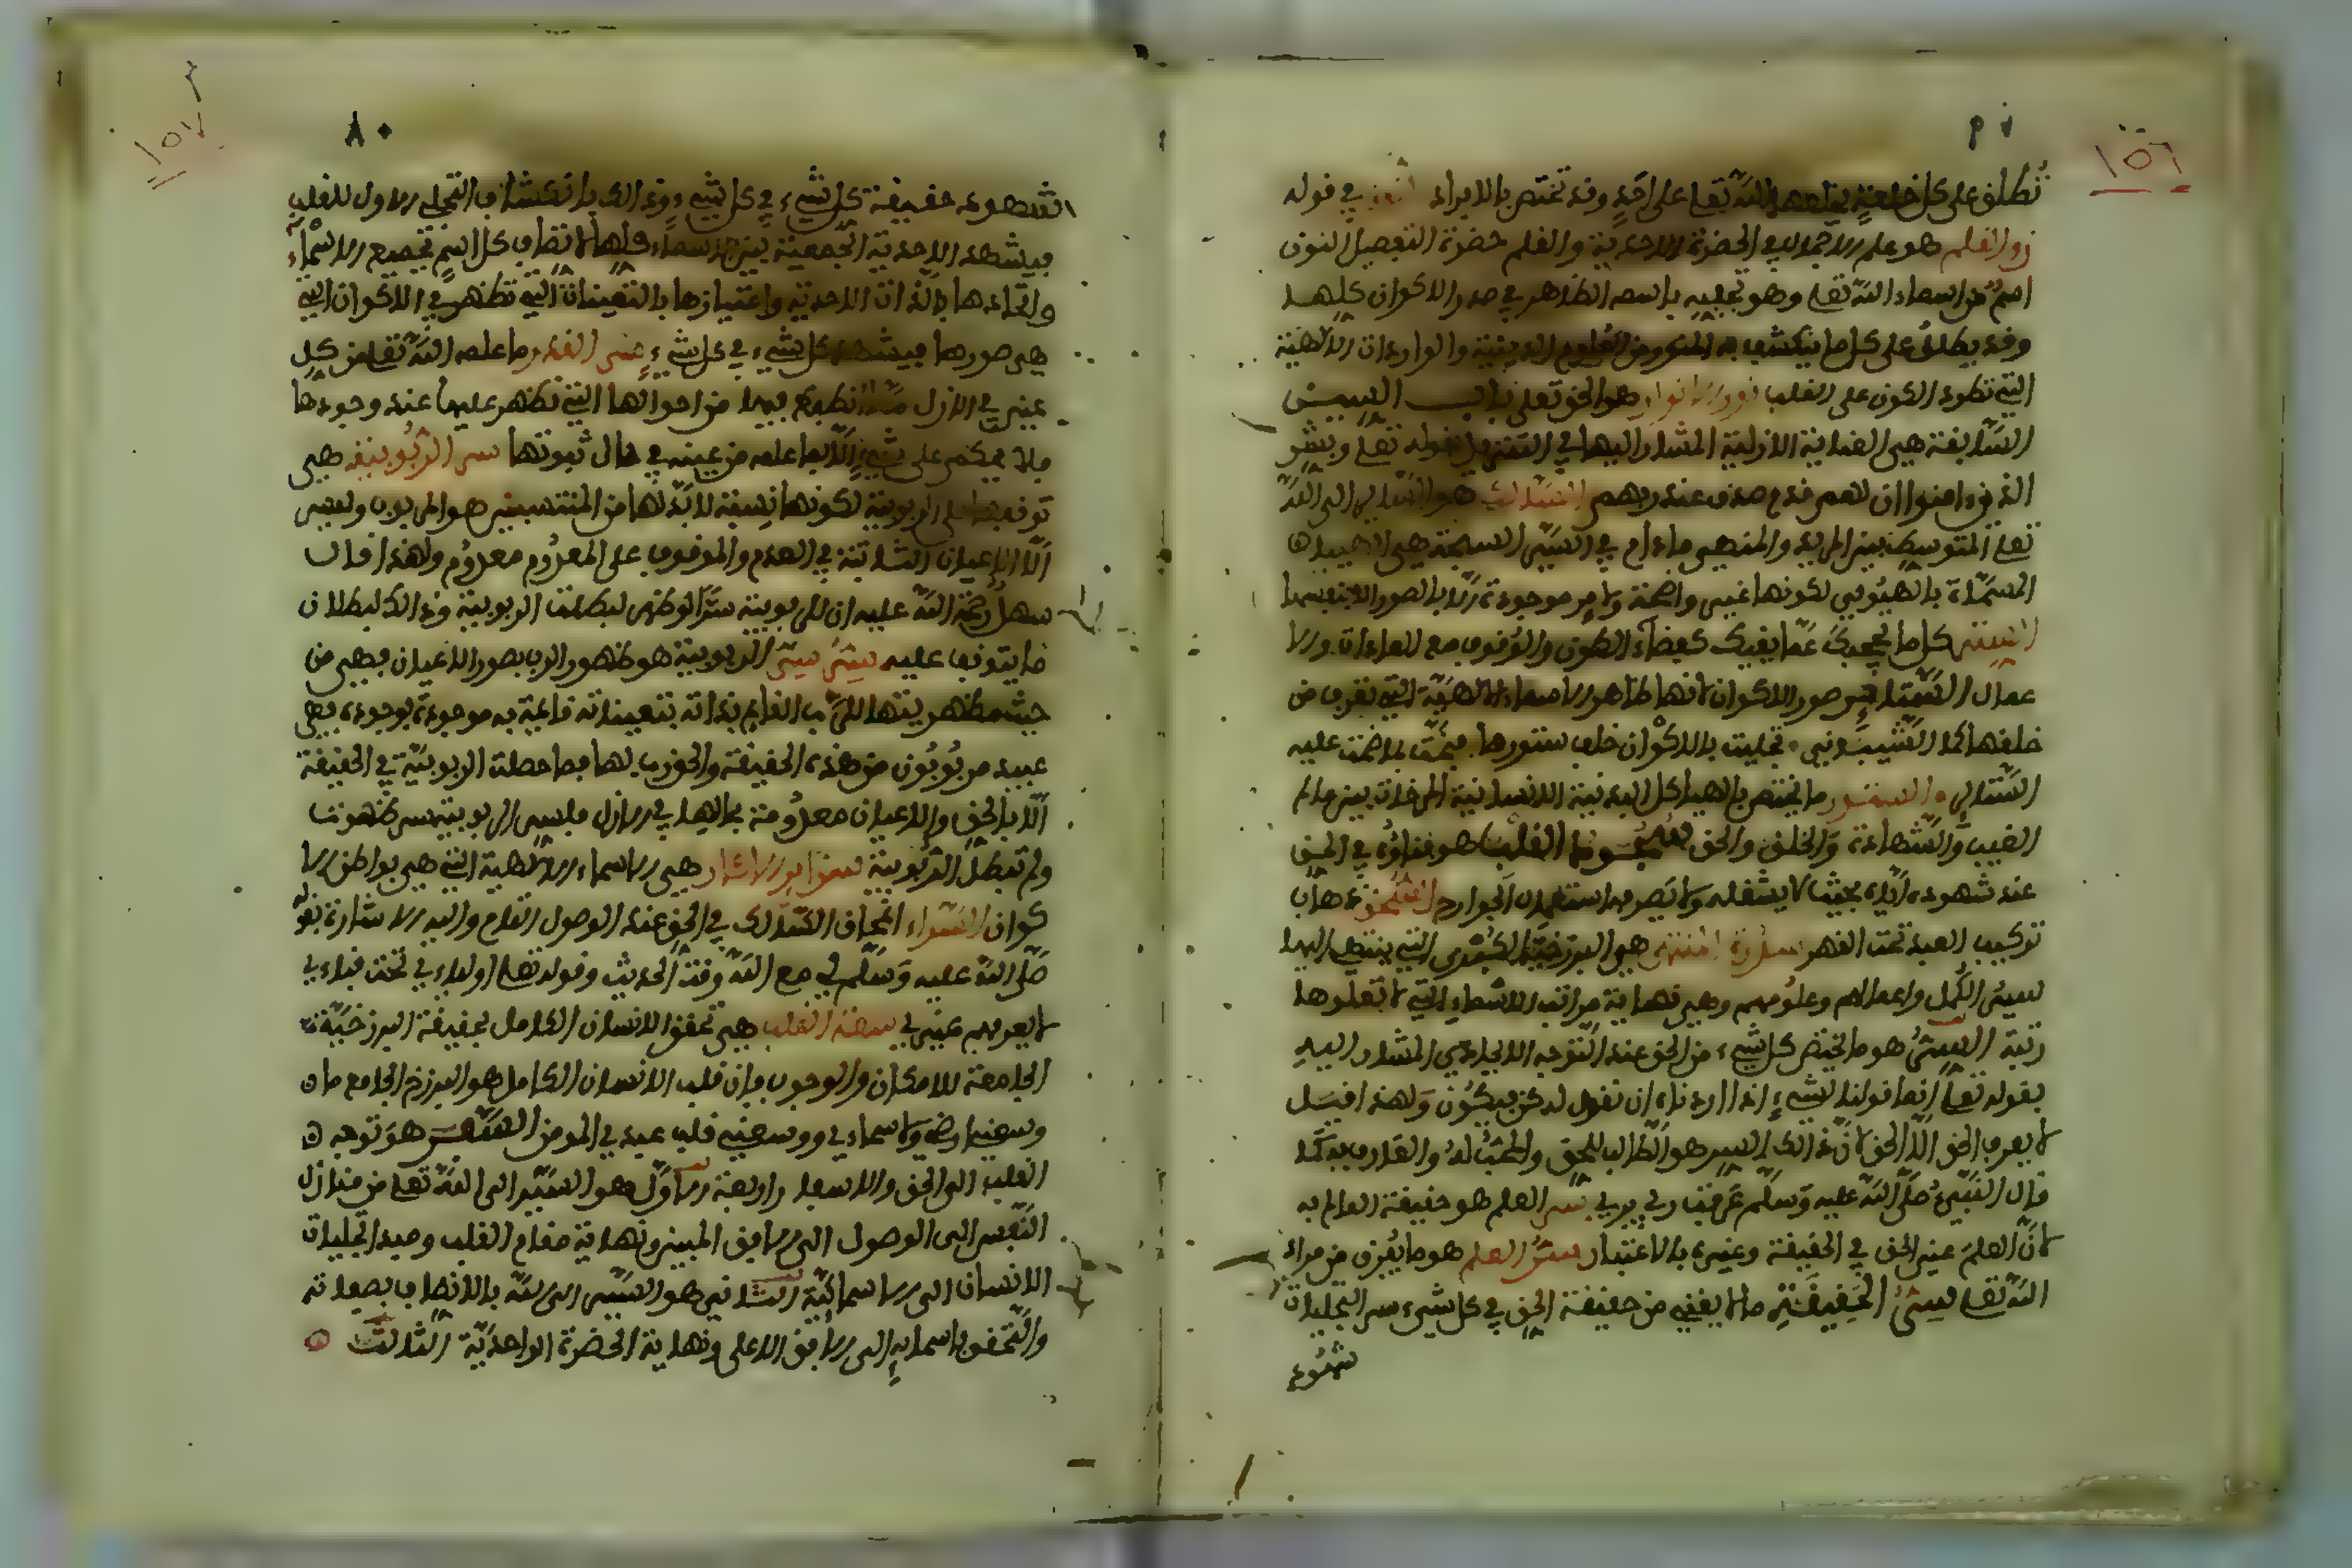 ١٥٦
تُطلق على كل خلعة يخلعها الله تعلى على احد وقد تختص بالابراد النون في قوله
ن والقلم هو علم الاجمال في الحضرة الاحدية والقلم حضرة التفصيل النون
اسم من اسماء الله تعلى وهو تجليه باسمه الظاهر في صدر الاكوان كلها
وقد يطلق على كل ما ينكشف به المستور من العلوم الدينية والواردات الالهية
التي تطرد الكون على القلب نور الانوار هو الحق تعلى باب السين
السّابقة هي العناية الازلية المشار اليها في التنزيل بقوله تعلى وبشر
الذين ءامنوا ان لهم قدم صدق عند ربهم السّالك هو السّاير الى الله
تعلى المتوسط بين المريد والمنتهي ما دام في السّير السبحة هي الهباء
المسمّاة بالهيُولي لكونها غير واضحة ولا موجودة الا بالصور لا بنفسها
الستر كل ما يحجبك عمّا يغنيك كغطاء الكون والوُقوف مع العادات والا
عمال السّتاير صور الاكوان لانها مظاهر الاسماء الالهيّة التي تعرف من
خلفها كما الشيبَاني تجليت بالاكوان خلف ستورها فنمّت بما ضمت عليه
السّتاير والستور ما تختص بالهياكل البدنية الانسانية المرخات بين عالم
الغيب والشهادة والخلق والحق سجود القلب هو فناؤه في الحق
عند شهوده اياه بحيث لا يشغله ولا يَصرفه استعمال الجوارح السّحق ذهاب
تركيب العبد تحت القهر سدرة المنتهى هي البرزخيّة الكبرى التي ينتهي اليها
سيرُ الكُمل واعمالهم وعلومهم وهي نهاية مراتب الاسماء التي لا تعلوها
رتبة السرُّ هو ما يختص كل شيء من الحق عند التوجه الايجادي المشار اليه
بقوله تعلى انما قولنا لشيء اذا اردناه ان نقول له كن فيكون ولهذا قيل
لا يعرف الحق الا الحق لانّ ذلك السر هو الطالب للحق والمحبّ له والعارف به كما
قال النبيّ صلّى الله عليه وسلّم عرفت ربي بربي سر العلم هو حقيقة العالم به
لانّ العلم عين الحق في الحقيقة وغيره بالاعتبار سرّ العلم هو ما يُعرف من مراد
الله تعلى سرُّ الحَقيقة ما لا يفشى من حقيقة الحق في كل شيء سر التجليات
شهُود
١٥٧
٨٠
الشهود حقيقة كل شيء في كل شيء وذلك بانكشاف التجلي الاول للقلب
فيشهد الاحدية الجمعية بين الاسماء كلها لاتصاف كل اسم بجميع الاسماء
واتحادها بالذات الاحدية وامتيازها بالتعينات التي تظهر في الاكوان التي
هي صورها فيشهد كل شيء في كل شيء سر القدر ما علمه الله تعلى من كل
عين في الازل مما انطبع فيها من احوالها التي تظهر عليها عند وجودها
فلا يحكم على شيء الا بما علمه من عينه في حال ثبوتها سر الرّبُوبية هي
توقفها على المربوبية لكونها نسبة لا بدّ لها من المنتسبين هو المربوب وليس
الّا الاعيان الثابتة في العدم والموقوف على المعدُوم معدُوم ولهذا قال
سهل رحمة الله عليه ان للربوبية سرّا لو ظهر لبطلت الربوبية وذلك لبطلان
ما يتوقف عليه سرّ سرّ الربوبية هو ظهور الرب بصور الاعيان فهي من
حيث مظهريتها للرّب القايم بذاته بتعيناته قايمة به موجودة بوجوده فهي
عبيد مربُوبُون من هذه الحقيقة والحق رب لها فما حصلت الربوبيّة في الحقيقة
الّا بالحق والاعيان معدُومة بحالها في الازل فلسر الربوبية سر ظهرت
ولم تبطل الرّبُوبيّة سراير الاثار هي الاسماء الالهية التي هي بواطن الا
كوان السّراء انمحاق السّالك في الحق عند الوصول التام واليه الاشارة بقوله
صلّى الله عليه وسلّم لي مع الله وقت الحديث وقوله تعلى اوليائي تحت قبابي
لا يعرفهم غيري سعة القلب هي تحقق الانسان الكامل بحقيقة البرزخيّة
الجامعة للامكان والوجوب فان قلب الانسان الكامل هو البرزخ الجامع
وسعني ارضي ولا سمائي ووسعني قلب عبدي المومن السّفر هو توجه
القلب الى الحق والاسفار اربعة الاوّل هو السّير الى الله تعلى من منازل
النّفس الى الوصول الى الافق المبين ونهاية مقام القلب ومبدا تجليات
الانسان الى الاسمائيّة الثاني هو السّير الى الله بالاتصاف بصفاته
والتّحقق باسمايه الى الافق الاعلى ونهاية الحضرة الواحديّة الثالث